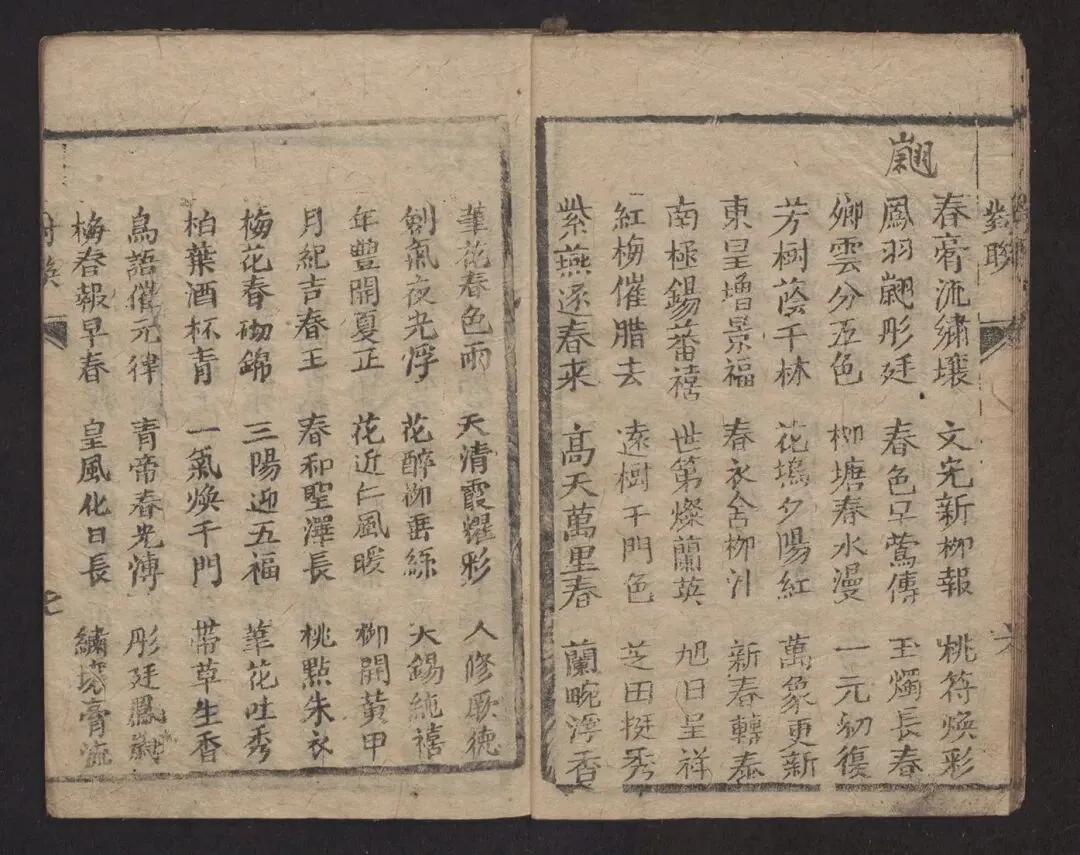 對聯
翽
春膏流繡壤 文宪新柳報 桃符煥彩
鳳羽翽彤廷 春色早鶯傳 玉燭長春
卿雲分五色 柳塘春水漫 一元初復
芳樹蔭千林 花塢夕陽紅 萬象更新
東皇增景福 春衣舍柳汁 新春轉泰
南極錫蕃禧 世第燦蘭英 旭日呈祥
紅梅催腊去 遠樹千門色 芝田挺秀
紫燕逐春来 高天萬里春 蘭畹浮香
六
筆花春色雨 天清霞耀彩 人修厥德
劍氣夜光浮 花醉柳垂絲 天錫純禧
年豐開夏正 花近仁風暖 柳開黃甲
月紀吉春王 春和聖澤長 桃點朱衣
梅花春砌錦 三陽迎五福 筆花吐秀
柏葉酒杯青 一氣煥千門 帶草生香
鳥語催元律 青帝春光溥 彤廷鳳翽
梅春報早春 皇風化日長 繡壤膏流
七